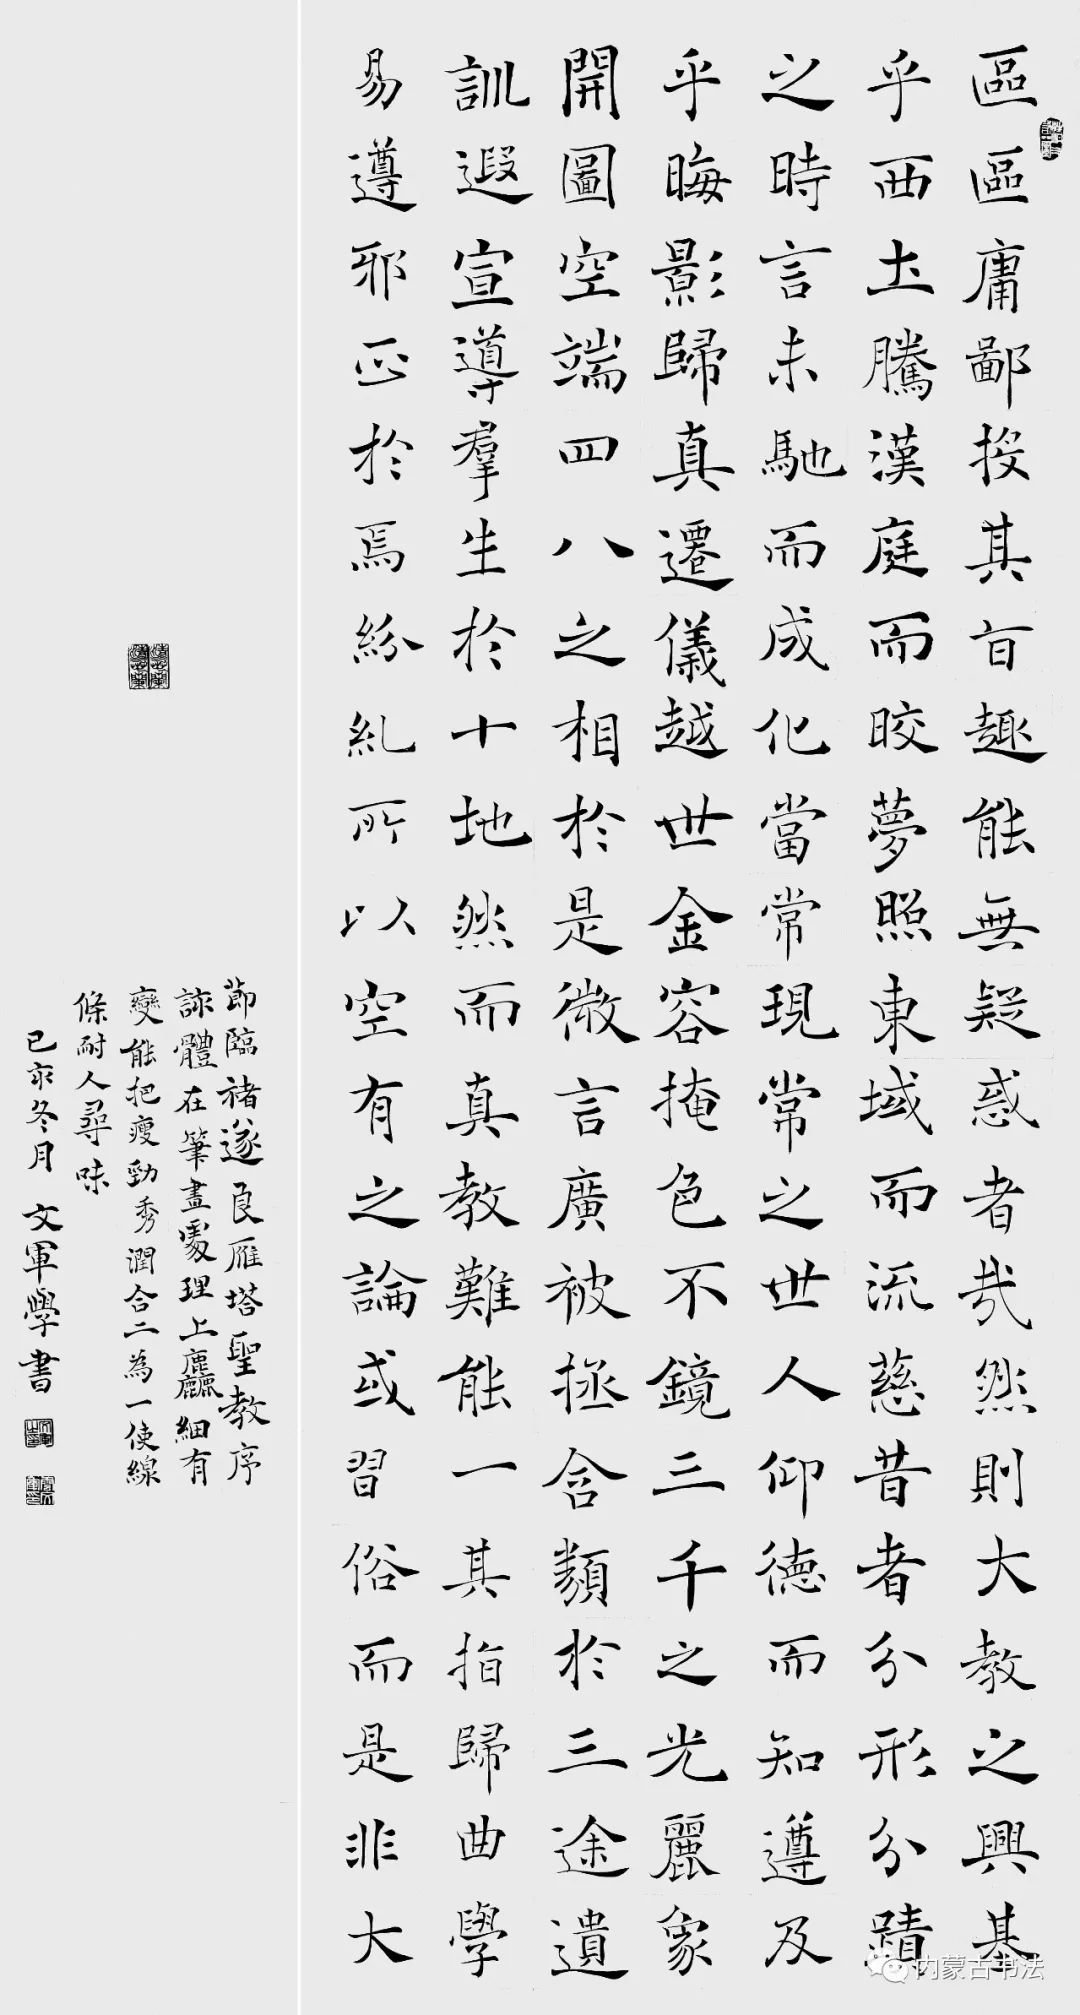 區區庸鄙投其旨趣能無疑惑者哉然則大教之興基
乎西土騰漢庭而皎夢照東域而流慈昔者分形分蹟
之時言未馳而成化當常現常之世人仰德而知遵及
乎晦影歸真遷儀越世金容掩色不鏡三千之光麗象
開圖空端四八之相於是微言廣被拯含類於三途遺
訓遐宣導羣生於十地然而真教難能一其指歸曲學
易遵邪正於焉紛糺所以空有之論或習俗而是非大
節臨褚遂良雁塔聖教序
詠體在筆畫處理上麤細有
變能把瘦勁秀潤合二為一使線
條耐人尋味
己亥冬月 文軍學書
内蒙古书法